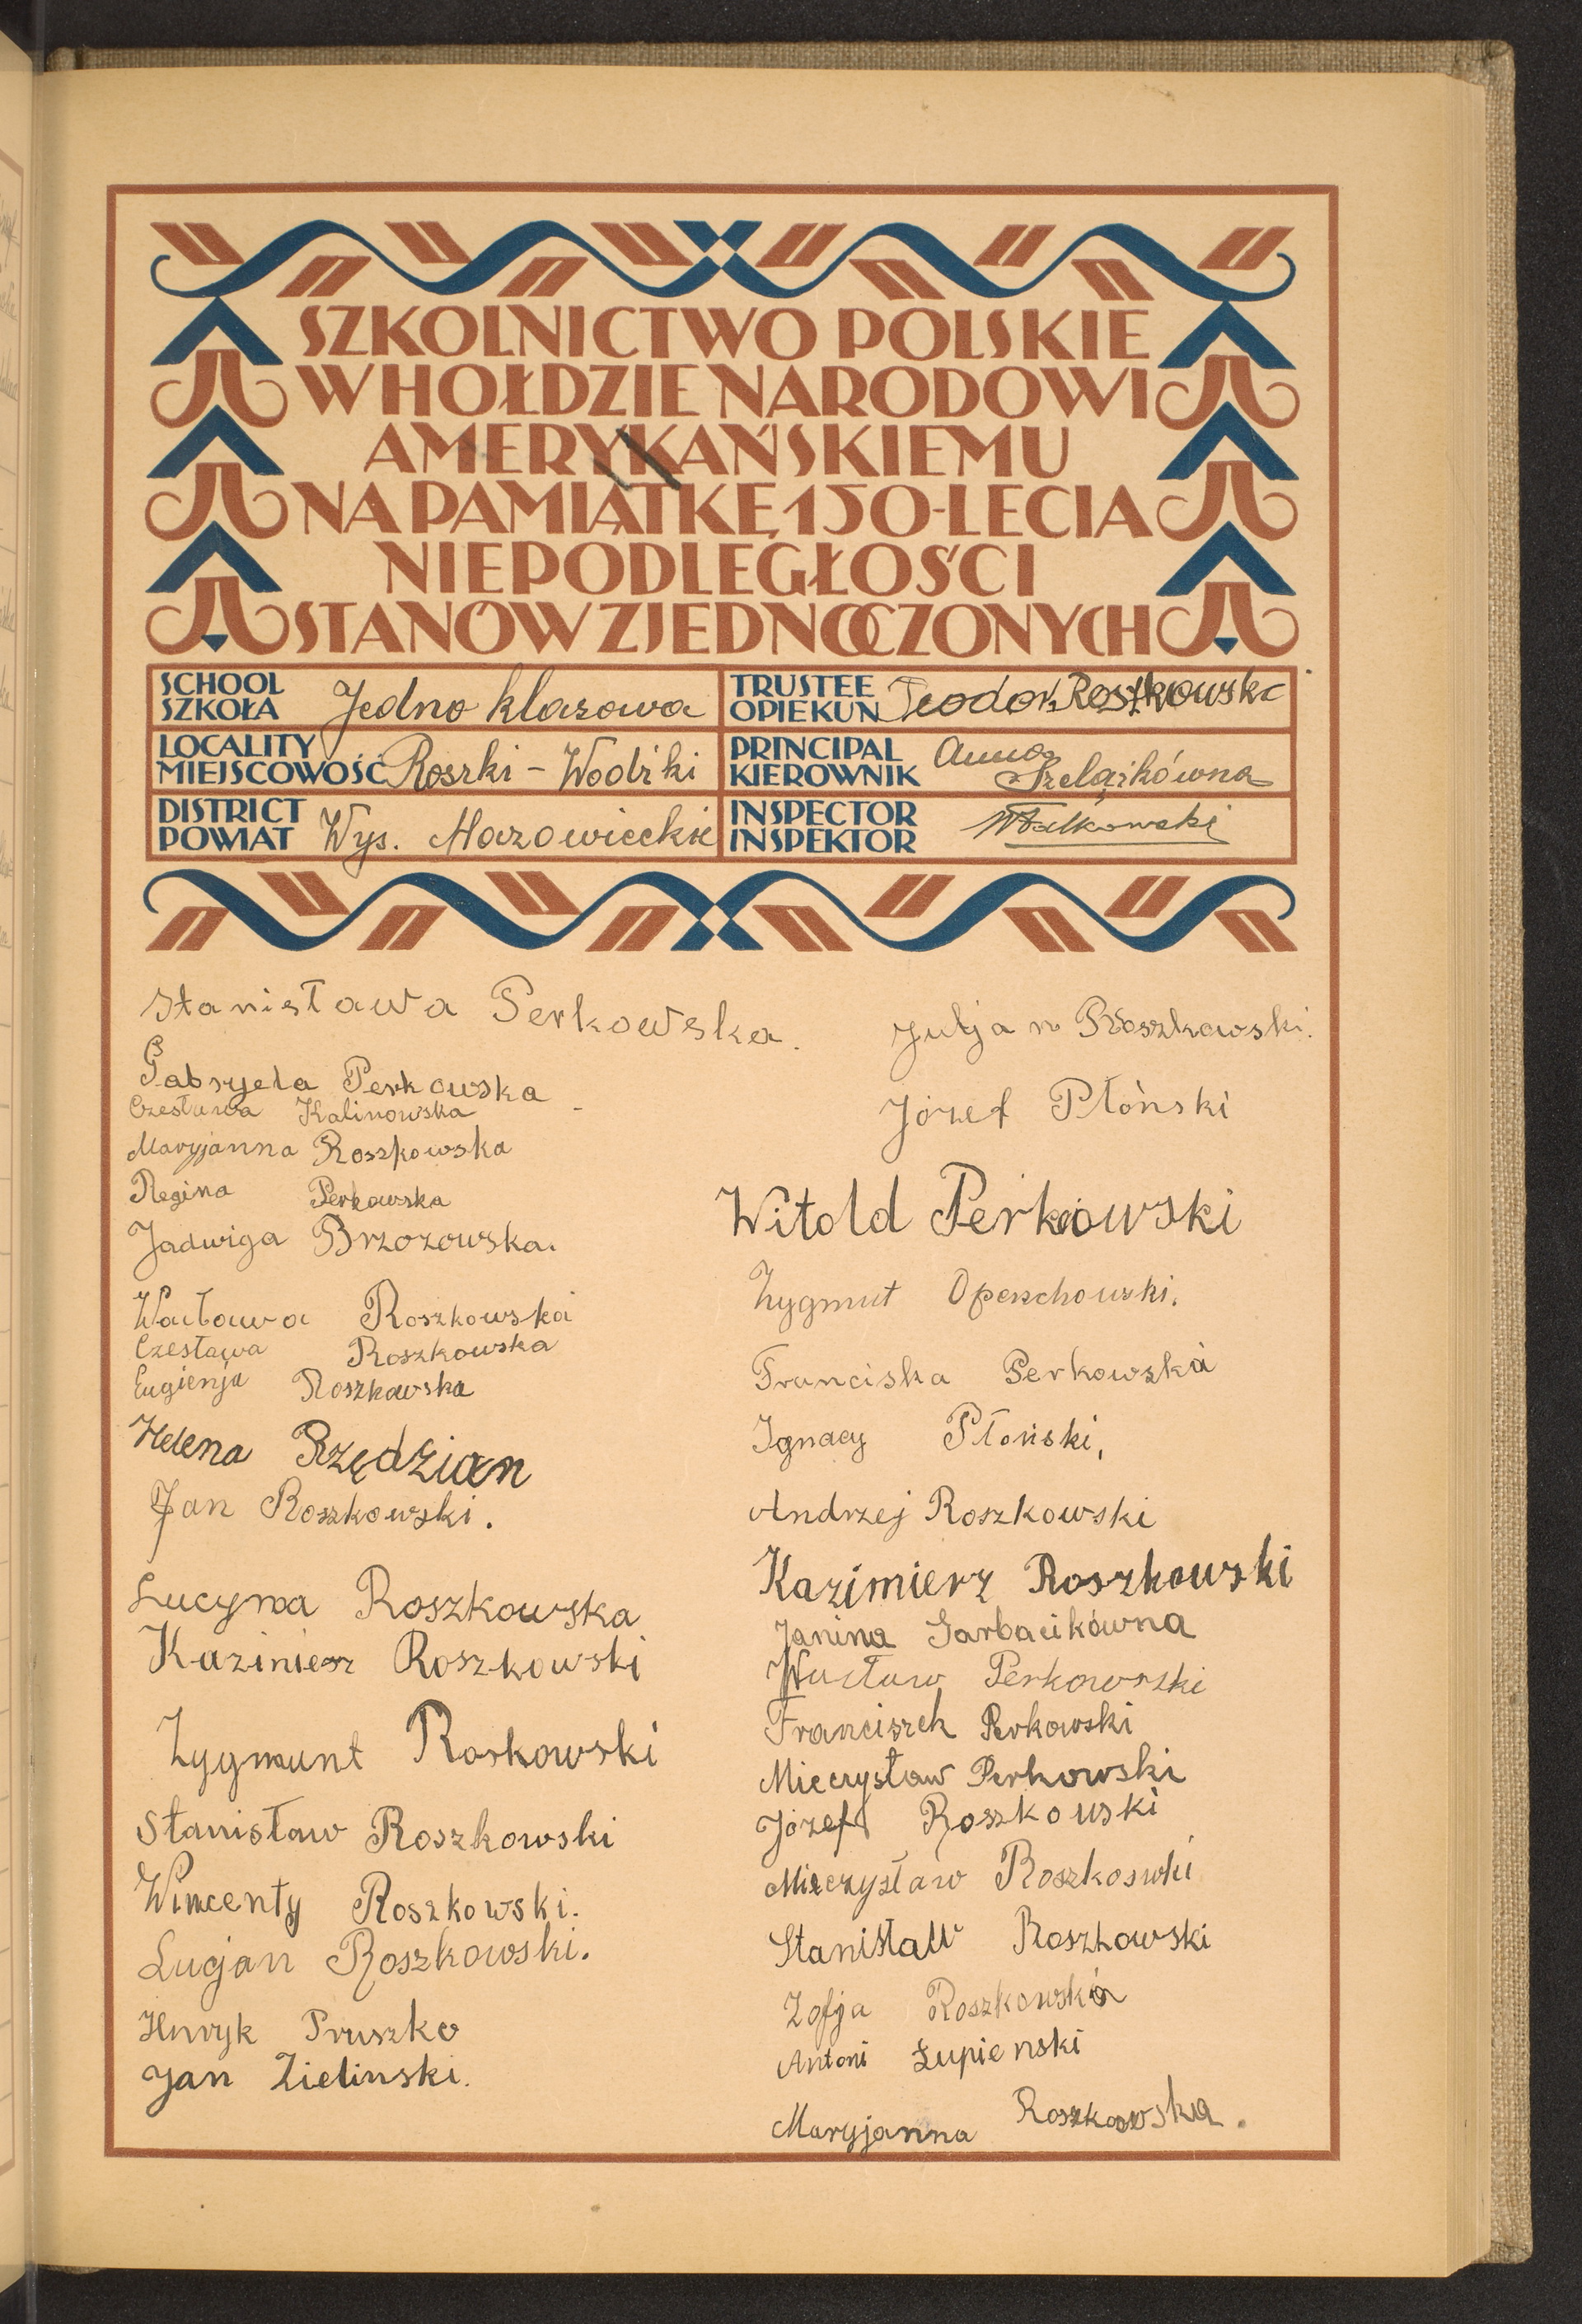 SZKOLNICTWO POLSKIE
W HOŁDZIE NARODOWI
AMERYKAŃSKIEMU
NA PAMIĄTKĘ 150-LECIA
NIEPODLEGŁOŚCI
STANÓW ZJEDNOCZONYCH
SCHOOL
SZKOŁA
Jedno klasowa
TRUSTEE
OPIEKUN
Teodor Roszkowski
LOCALITY
MIEJSCOWOŚĆ
Roszki - Wodźki
PRINCIPAL
KIEROWNIK
Anna
Szelążkówna
DISTRICT
POWIAT
Wys. Mazowieckie
INSPECTOR
INSPEKTOR
Stanisława Perkowska.
Gabryela Perkowska
Czesława Kalinowska
Maryjanna Roszkowska
Regina Perkowska
Jadwiga Brzozowska.
Wacława Roszkowska
Czesława Roszkowska
Eugienja Roszkowska
Helena Rzędzian
Jan Roszkowski.
Lucyna Roszkowska
Kazimierz Roszkowski
Zygmunt Roskowski
Stanisław Roszkowski
Wincenty Roszkowski.
Lucjan Roszkowski.
Henryk Pruszko
Jan Zielinski.
Juljan Roszkowski.
Józef Płóński
Witold Perkowski
Zygmut Openchowski.
Franciska Perkowska
Ignacy Płoński,
Andrzej Roszkowski
Kazimierz Roszkowski
Janina Garbacikówna
Wacław Perkowski
Franciszek Perkowski
Mieczysław Perkowski
Józef Roszkowski
Mieczysław Roszkoswki
Stanisław Roszkowski
Zofja Roszkowska
Antoni Łupienski
Maryjanna Roszkowska.